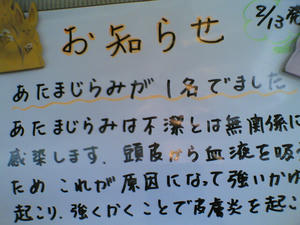 2/13発
お知らせ
あたまじらみが1名でました
あたまじらみは不潔とは無関係に
感染します。頭皮から血液を吸う
ため これが原因になって強いかゆ
起こり、強くかくことで皮膚炎を起こ